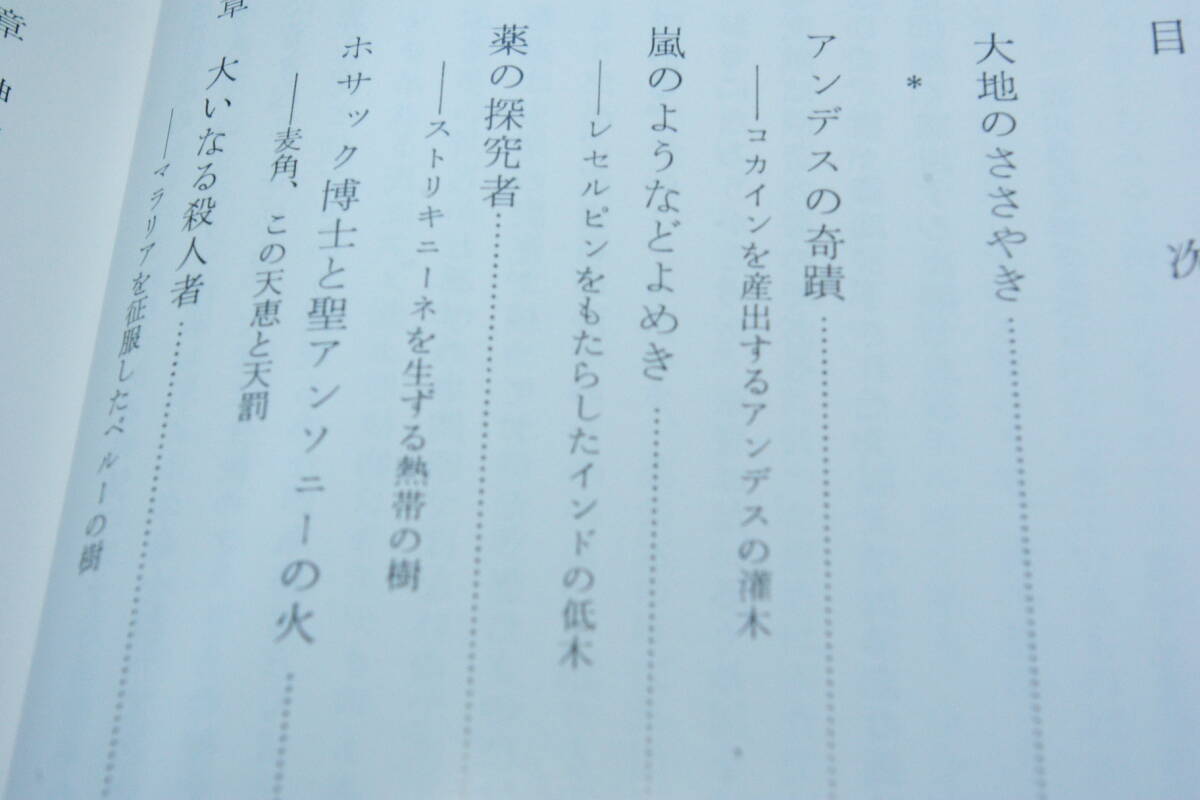 目次
大地のささやき
*
アンデスの奇蹟
――コカインを産出するアンデスの灌木
嵐のようなどよめき
――レセルピンをもたらしたインドの低木
薬の探究者
――ストリキニーネを生ずる熱帯の樹
ホサック博士と聖アンソニーの火
――麦角、この天恵と天罰
章 大いなる殺人者
――マラリアを征服したペルーの樹
章